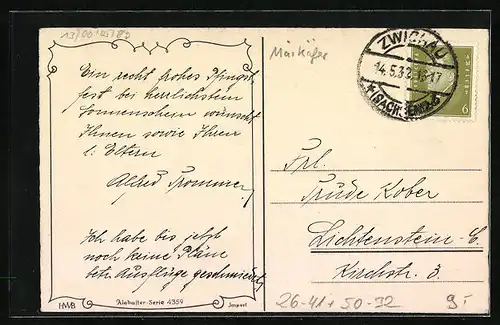 13/00105/80
Maikäfer
ZWICKAU
14.5.32.16-17
(SACHSEN)
6
Ein recht frohes Pfingst
fest bei herrlichstem
Sonnenschein wünscht
Ihnen sowie Ihren
l. Eltern
Alfred Trommer
Ich habe bis jetzt
noch keine Pläne
betr. Ausflüge geschmiedet
Frl.
Trude Kober
Lichtenstein-C.
Kirchstr. 3.
HMB
Alabaster-Serie 4359
26-41+50-32
9.-